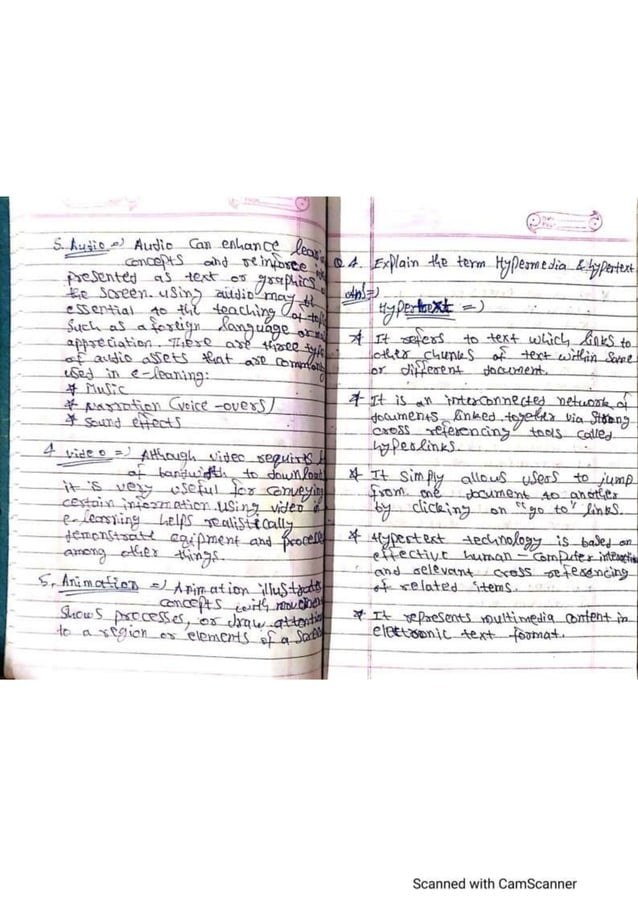 5. Audio => Audio can enhance
concepts and reinforce
presented as text or graphics
the screen. using audio may be
essential to the teaching of
such as a foreign language or
appreciation. There are three
of audio assets that are commonly
used in e-leaning:
* Music
* Narration (voice-overs)
* sound effects
4 video => Although video requires
of bandwidth to download
it is very useful for conveying
certain information using video
e-learning helps realistically
demonstrate eqipment and
among other things.
5. Animation => Animation illustrates
concepts with movement
shows processes, or draw attention
to a region or elements of a
Q 4. Explain the term Hypermedia & Hypertext
Ans =>
Hypertext =>
* It refers to text which links to
other chunks of text within same
or different document.
* It is an interconnected network of
documents linked together via strong
cross referencing tools called
hyperlinks.
* It simply allows users to jump
from one document to another
by clicking on "go to" links.
* Hypertext technology is based on
effective human - computer
and relevant cross referencing
of related items.
* It represents multimedia content in
electronic text format.
Scanned with CamScanner